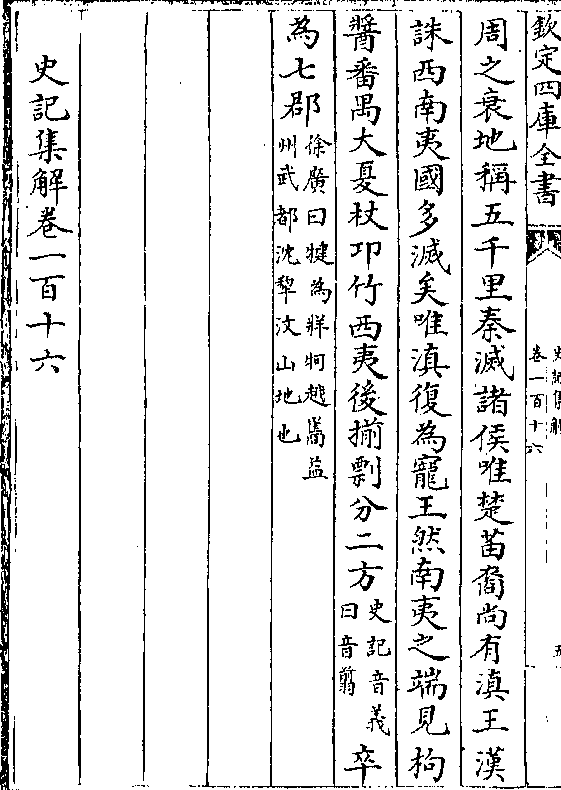 欽定四庫全書
史記集解
卷一百十六
五
周之衰地稱五千里秦滅諸侯唯楚苗裔尚有滇王漢
誅西南夷國多滅矣唯滇復為寵王然南夷之端見枸
醬番禺大夏杖邛竹西夷後揃剽分二方史記音義曰音翦卒
為七郡徐廣曰犍為牂牁越嶲益州武都沈犂汶山地也
史記集解卷一百十六